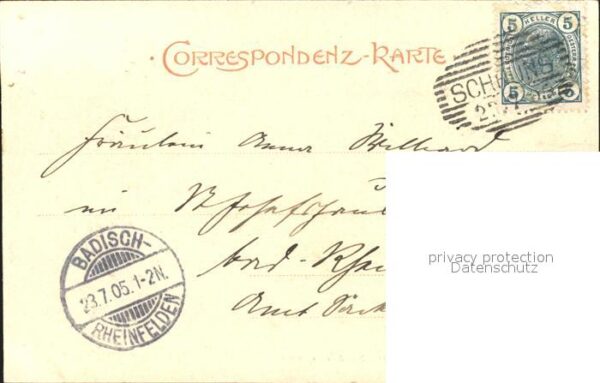 CORRESPONDENZ-KARTE
5 HELLER 5
5 5
SCH
Fräulein Anna
im St. Josefshaus
bad-Rhein
Amt Säck
BADISCH-
23.7.05.1-2N.
RHEINFELDEN
privacy protection
Datenschutz